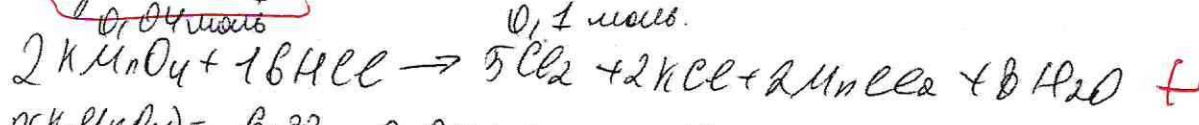 0,04 моль 0,1 моль.
2KMnO4 + 16HCl → 5Cl2 + 2KCl + 2MnCl2 + 8H2O +